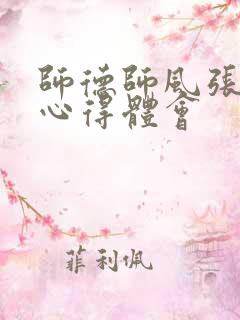 師德師風張
心得體會
菲利佩